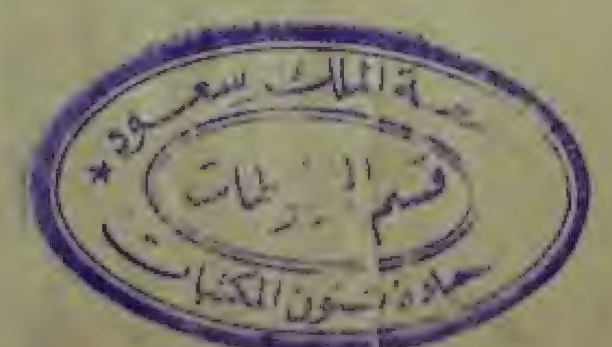 جامعة الملك سعود *
قسم المخطوطات
عمادة شئون المكتبات